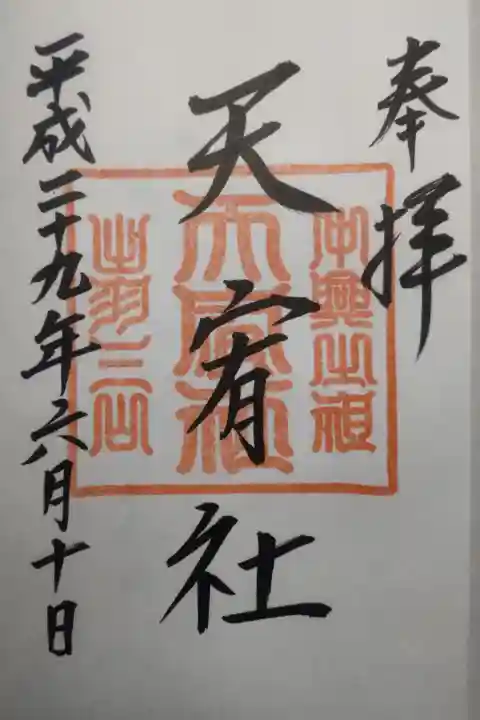 奉拝
中興之祖
天宥社
天宥社
出羽三山
平成二十九年六月十日